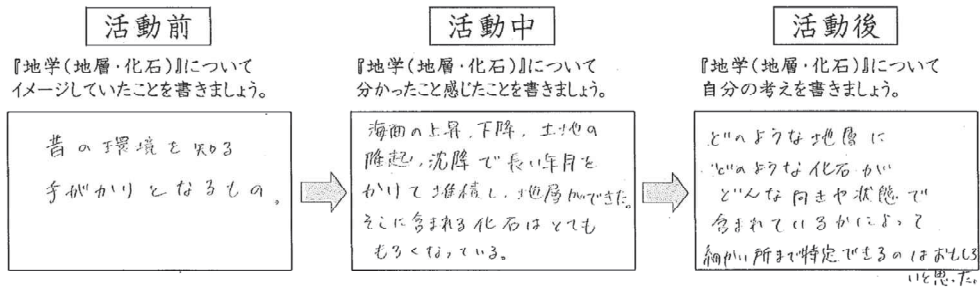 活動前
『地学(地層・化石)』について
イメージしていたことを書きましょう。
昔の環境を知る
手がかりとなるもの。
活動中
『地学(地層・化石)』について
分かったこと感じたことを書きましょう。
海面の上昇、下降、土地の
隆起、沈降で長い年月を
かけて堆積し、地層ができた。
そこに含まれる化石はとても
もろくなっている。
活動後
『地学(地層・化石)』について
自分の考えを書きましょう。
どのような地層に
どのような化石が
どんな向きや状態で
含まれているかによって
細かい所まで特定できるのはおもしろ
いと思った。